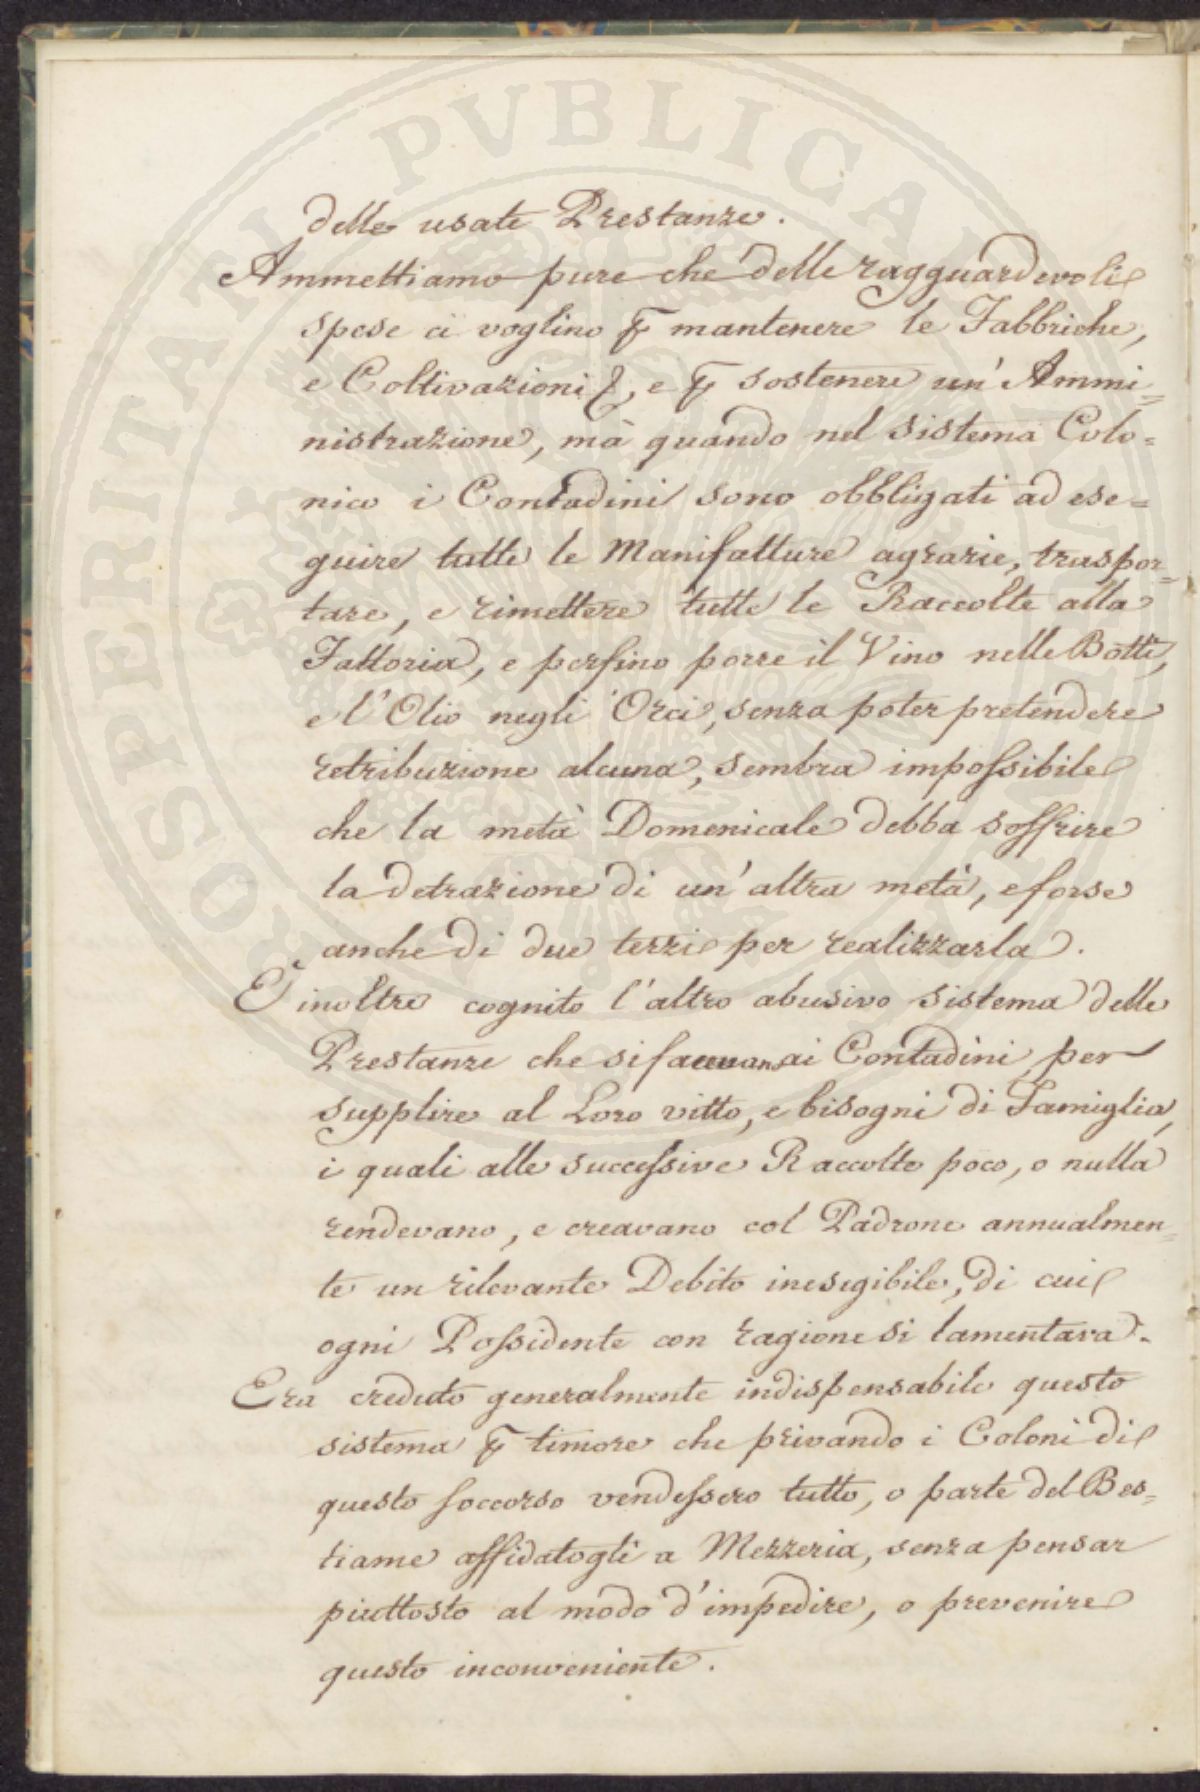 delle usate Prestanze.
Ammettiamo pure che delle ragguardevoli
spese ci voglino p mantenere le Fabbriche,
e Coltivazioni, e p sostenere un' Ammi=
nistrazione, mà quando nel sistema Colo=
nico i Contadini sono obbligati ad ese=
guire tutte le Manifatture agrarie, traspor=
tare, e rimettere tutte le Raccolte alla
Fattoria, e perfino porre il Vino nelle Botti,
e l'Olio negli Orci, senza poter pretendere
retribuzione alcuna, sembra impossibile
che la metà Domenicale debba soffrire
la detrazione di un' altra metà, e forse
anche di due terzi per realizzarla.
E' inoltre cognito l'altro abusivo sistema delle
Prestanze che si facevano ai Contadini per
supplire al Loro vitto, e bisogni di Famiglia,
i quali alle successive Raccolte poco, o nulla
rendevano, e creavano col Padrone annualmen=
te un rilevante Debito inesigibile, di cui
ogni Possidente con ragione si lamentava.
Era creduto generalmente indispensabile questo
sistema p timore che privando i Coloni di
questo soccorso vendessero tutto, o parte del Bes=
tiame affidatogli a Mezzeria, senza pensar
piuttosto al modo d'impedire, o prevenire
questo inconveniente.
PROSPERITATI PVBLICAE AVGENDAE